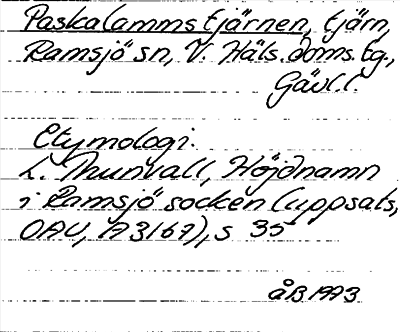 Paskalammstjärnen, tjärn,
Ramsjö sn, V. Häls. doms. tg.,
Gävl. l.
Etymologi.
L. Thunvall, Höjdnamn
i Ramsjö socken (uppsats,
OAU, A 3167), s 35
åB 1993